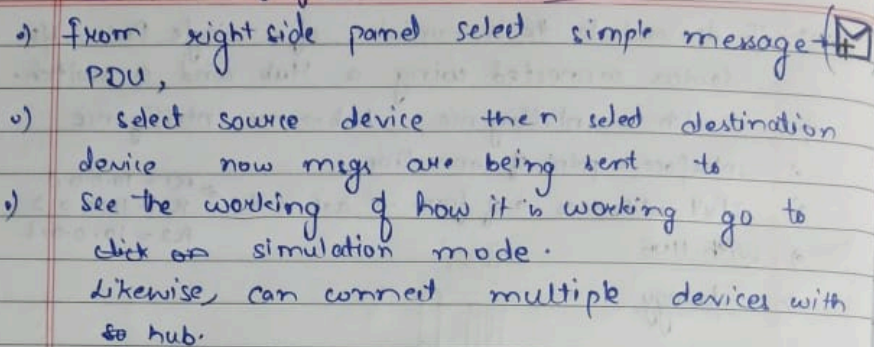 •) from right side panel select simple message
PDU,
•) select source device then select destination
device now msgs are being sent to
•) see the working of how it is working go to
click on simulation mode.
Likewise, can connect multiple devices with
so hub.